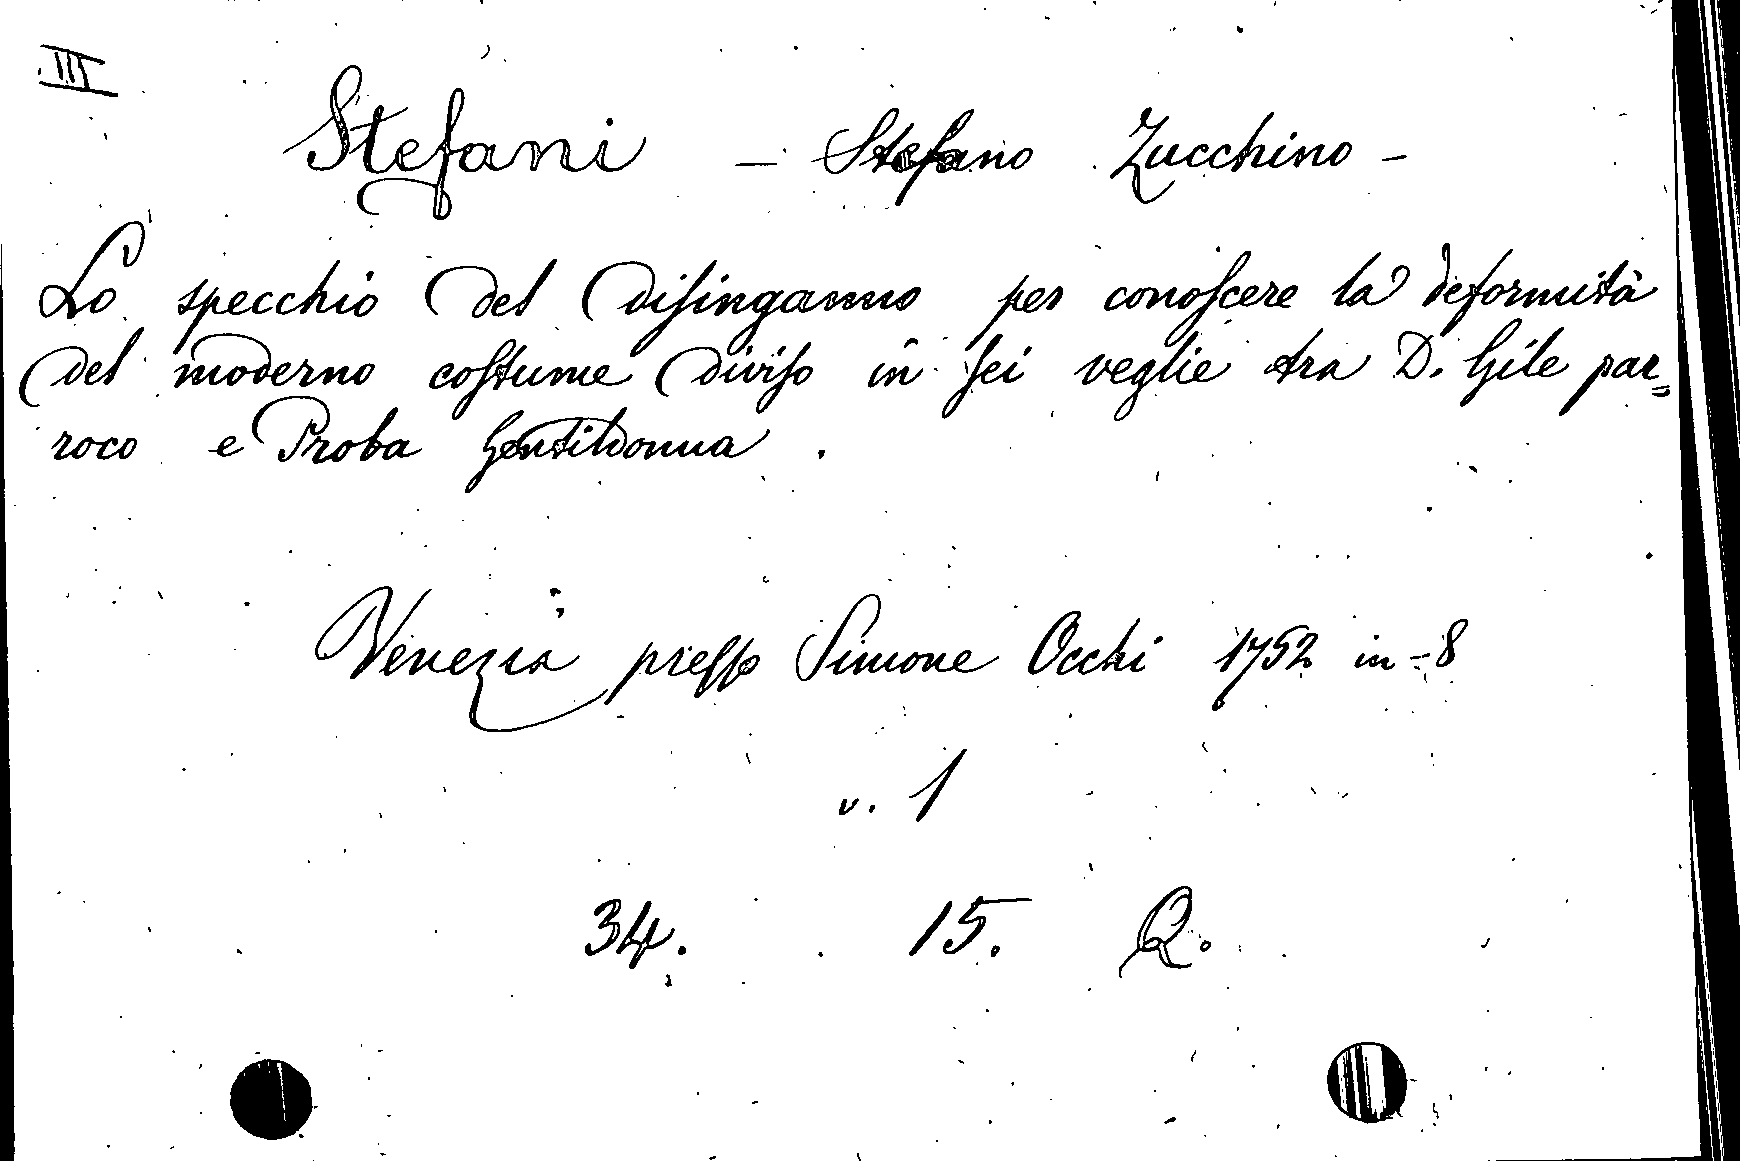 III
Stefani – Stefano Zucchino –
Lo specchio del disinganno per conoscere la deformità
del moderno costume diviso in sei veglie tra D. Gile par„
roco e Proba Gentildonna.
Venezia presso Simone Occhi 1752 in-8
v. 1
34. 15. Q.